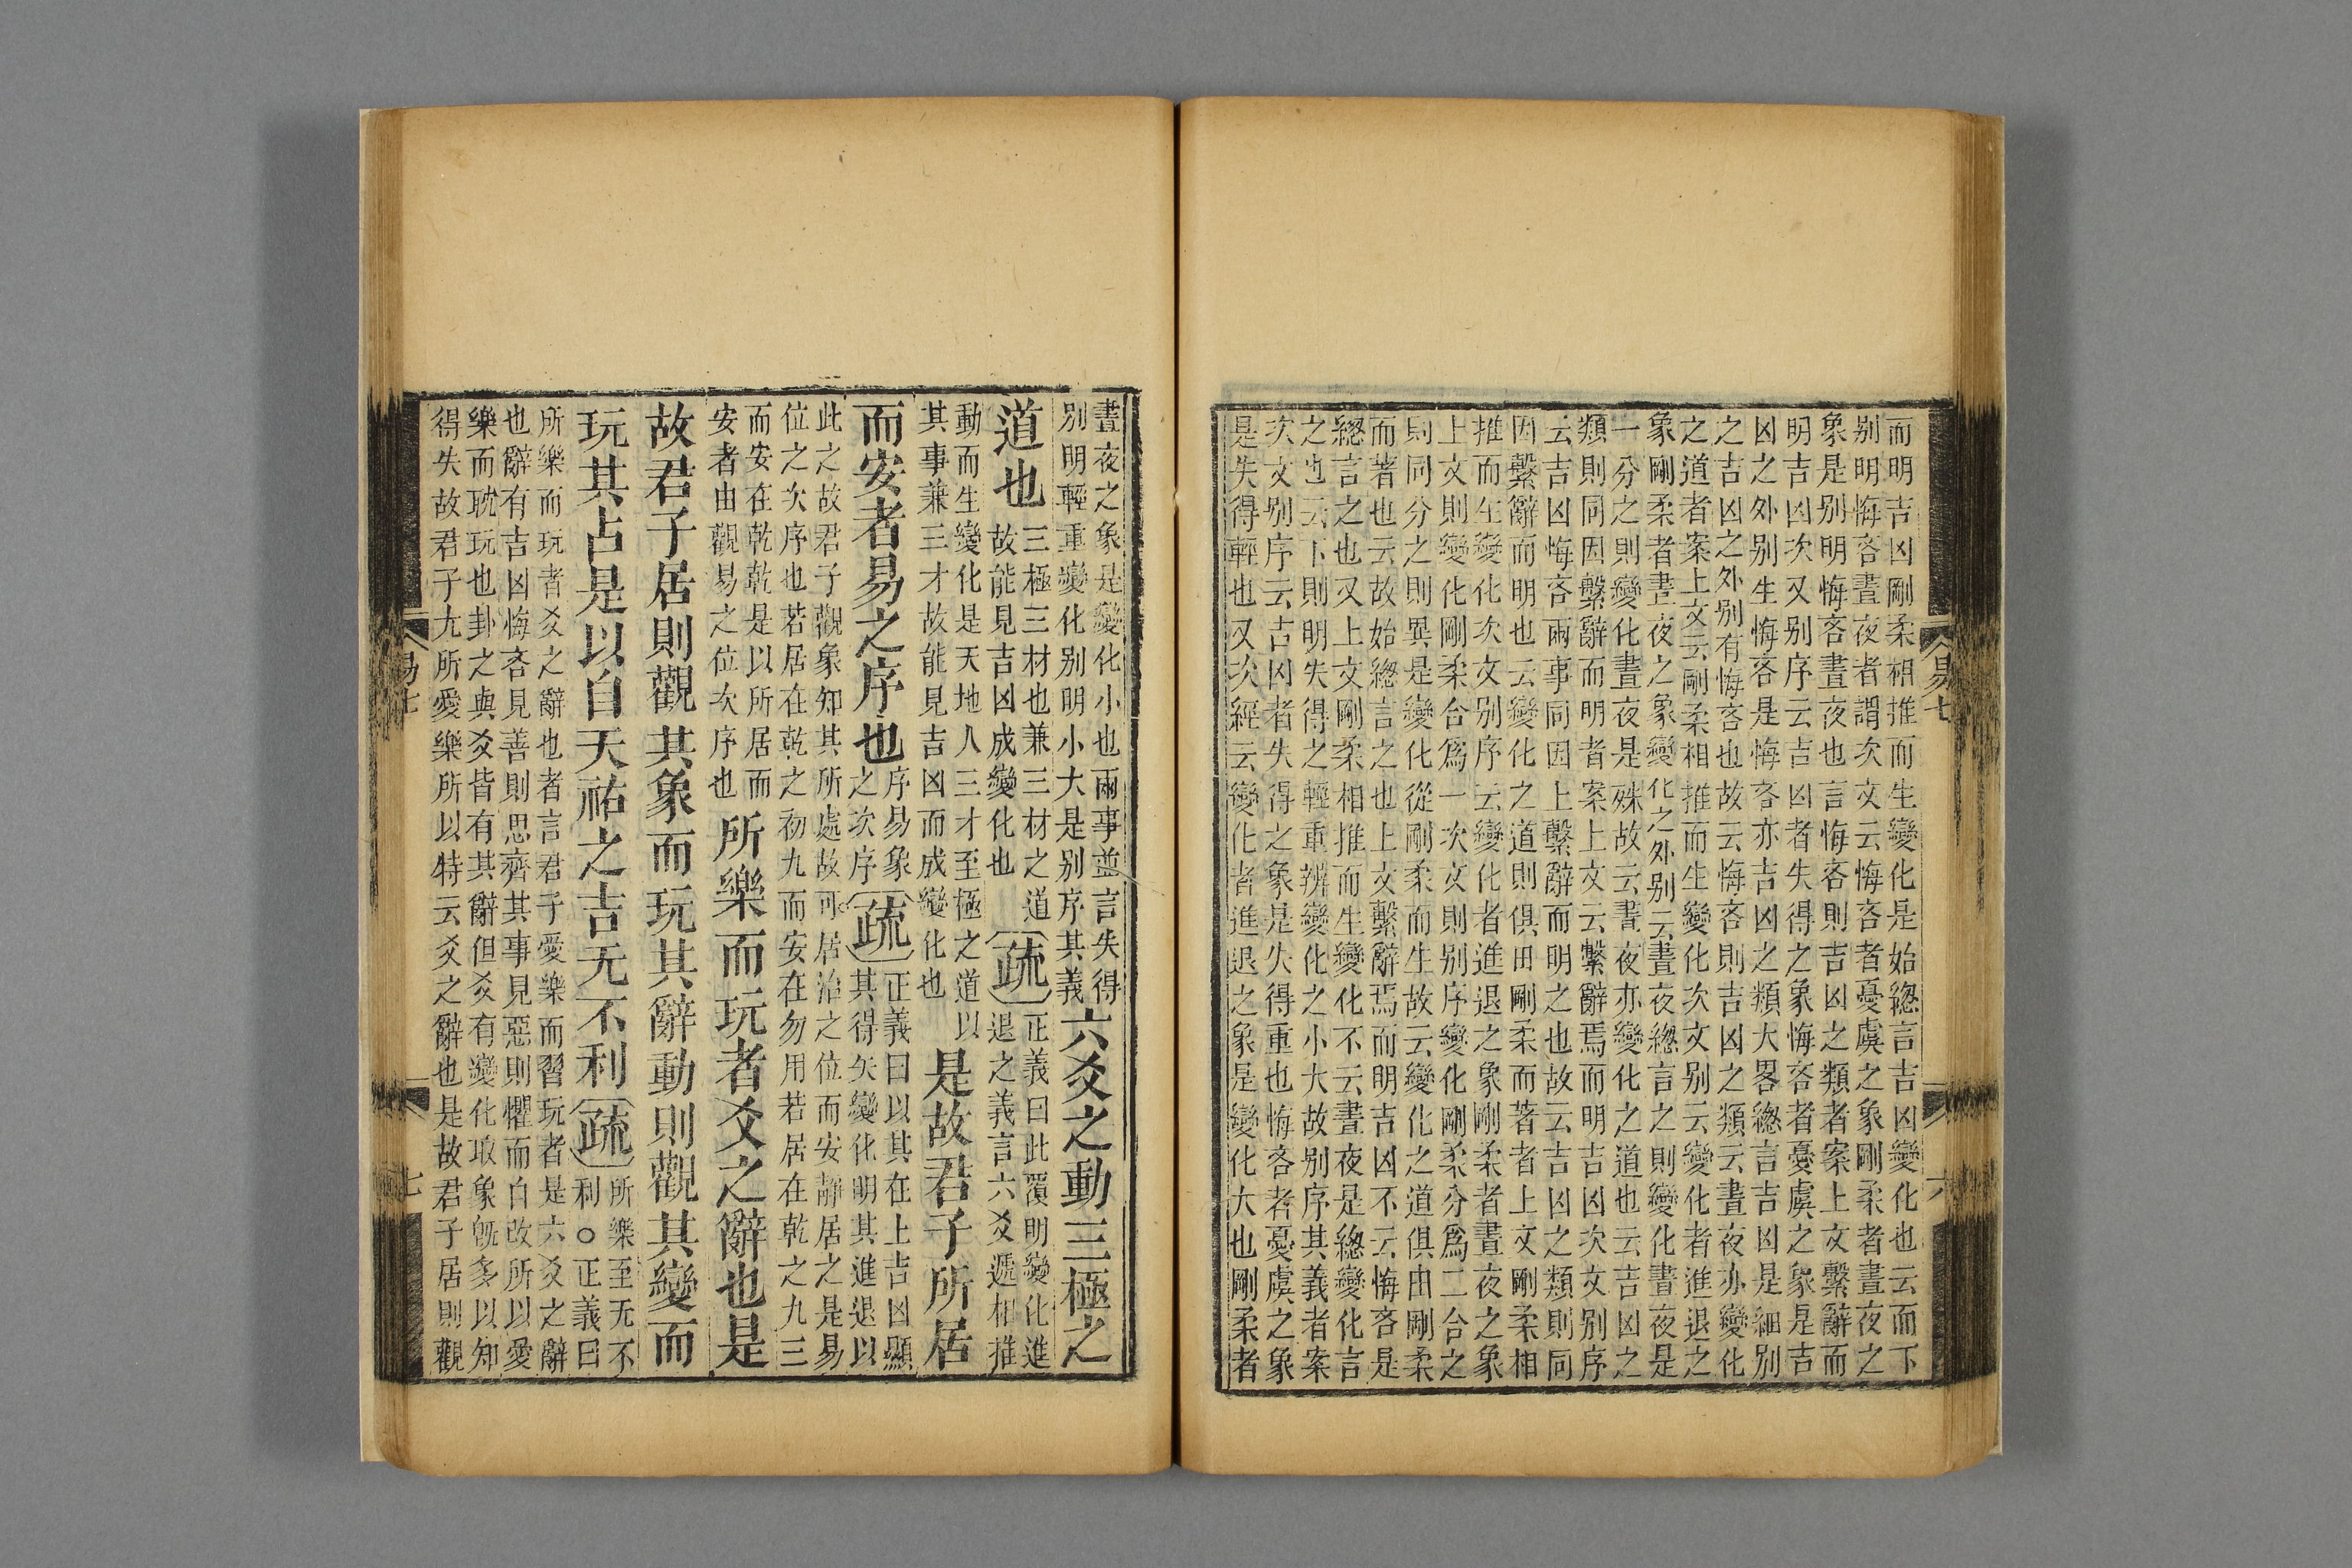 而明吉凶剛柔相推而生變化是始緫言吉凶變化也云而下
别明悔吝晝夜者謂次文云悔吝者憂虞之象剛柔者晝夜之
象是别明悔吝晝夜也言悔吝則吉凶之類者案上文繫辭而
明吉凶次又别序云吉凶者失得之象悔吝者憂虞之象是吉
凶之外别生悔吝是悔吝亦吉凶之類大畧緫言吉凶是細别
之吉凶之外别有悔吝也故云悔吝則吉凶之類云晝夜亦變化
之道者案上文云剛柔相推而生變化次文别云變化者進退之
象剛柔者晝夜之象變化之外别云晝夜緫言之則變化晝夜是
一分之則變化晝夜是殊故云晝夜亦變化之道也云吉凶之
類則同因繫辭而明者案上文云繫辭焉而明吉凶次文别序
云吉凶悔吝兩事同因上繫辭而明之也故云吉凶之類則同
因繫辭而明也云變化之道則俱由剛柔而著者上文剛柔相
推而生變化次文别序云變化者進退之象剛柔者晝夜之象
上文則變化剛柔合爲一次文則别序變化剛柔分爲二合之
則同分之則異是變化從剛柔而生故云變化之道俱由剛柔
而著也云故始緫言之也上文繫辭焉而明吉凶不云悔吝是
緫言之也又上文剛柔相推而生變化不云晝夜是緫變化言
之也云下則明失得之輕重辨變化之小大故别序其義者案
次文别序云吉凶者失得之象是失得重也悔吝者憂虞之象
是失得輕也又次經云變化者進退之象是變化大也剛柔者
易七
六
晝夜之象是變化小也兩事並言失得
别明輕重變化别明小大是别序其義
六爻之動三極之
道也
三極三材也兼三材之道
故能見吉凶成變化也
疏
正義曰此覆明變化進
退之義言六爻遞相推
動而生變化是天地人三才至極之道以
其事兼三才故能見吉凶而成變化也
是故君子所居
而安者易之序也
序易象
之次序
疏
正義曰以其在上吉凶顯
其得失變化明其進退以
此之故君子觀象知其所處故可居治之位而安靜居之是易
位之次序也若居在乾之初九而安在勿用若居在乾之九三
而安在乾乾是以所居而
安者由觀易之位次序也
所樂而玩者爻之辭也是
故君子居則觀其象而玩其辭動則觀其變而
玩其占是以自天祐之吉无不利
疏
所樂至无不
利○正義曰
所樂而玩者爻之辭也者言君子愛樂而習玩者是六爻之辭
也辭有吉凶悔吝見善則思齊其事見惡則懼而自改所以愛
樂而耽玩也卦之與爻皆有其辭但爻有變化取象旣多以知
得失故君子尤所愛樂所以特云爻之辭也是故君子居則觀
易七
七